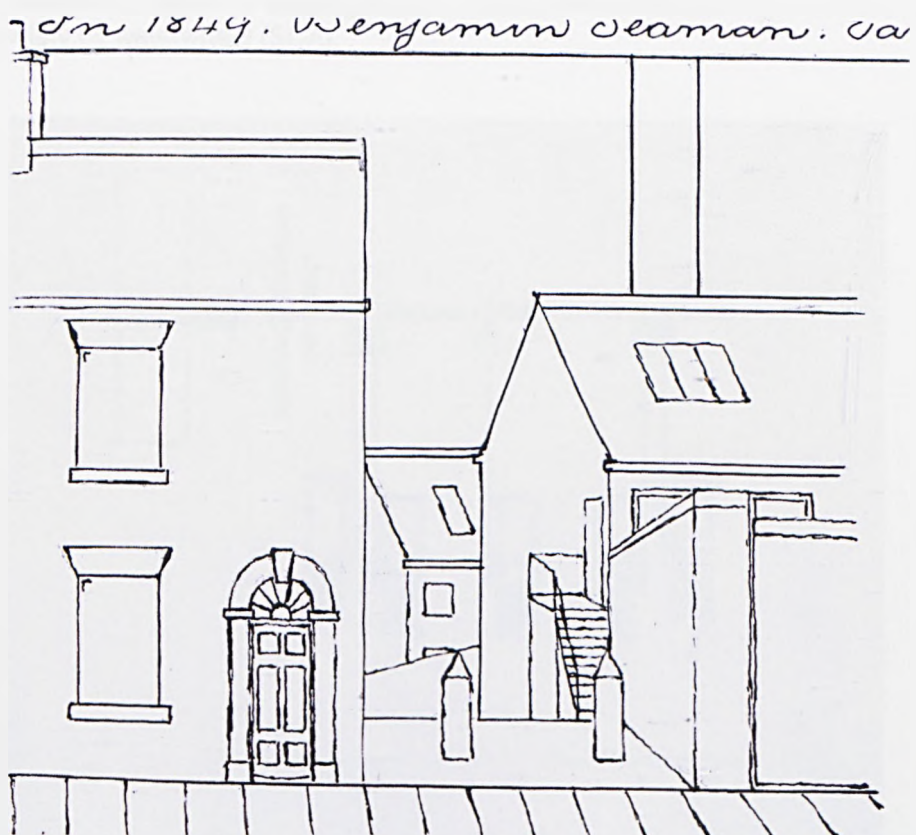 In 1849. Benjamin Seaman. Sa